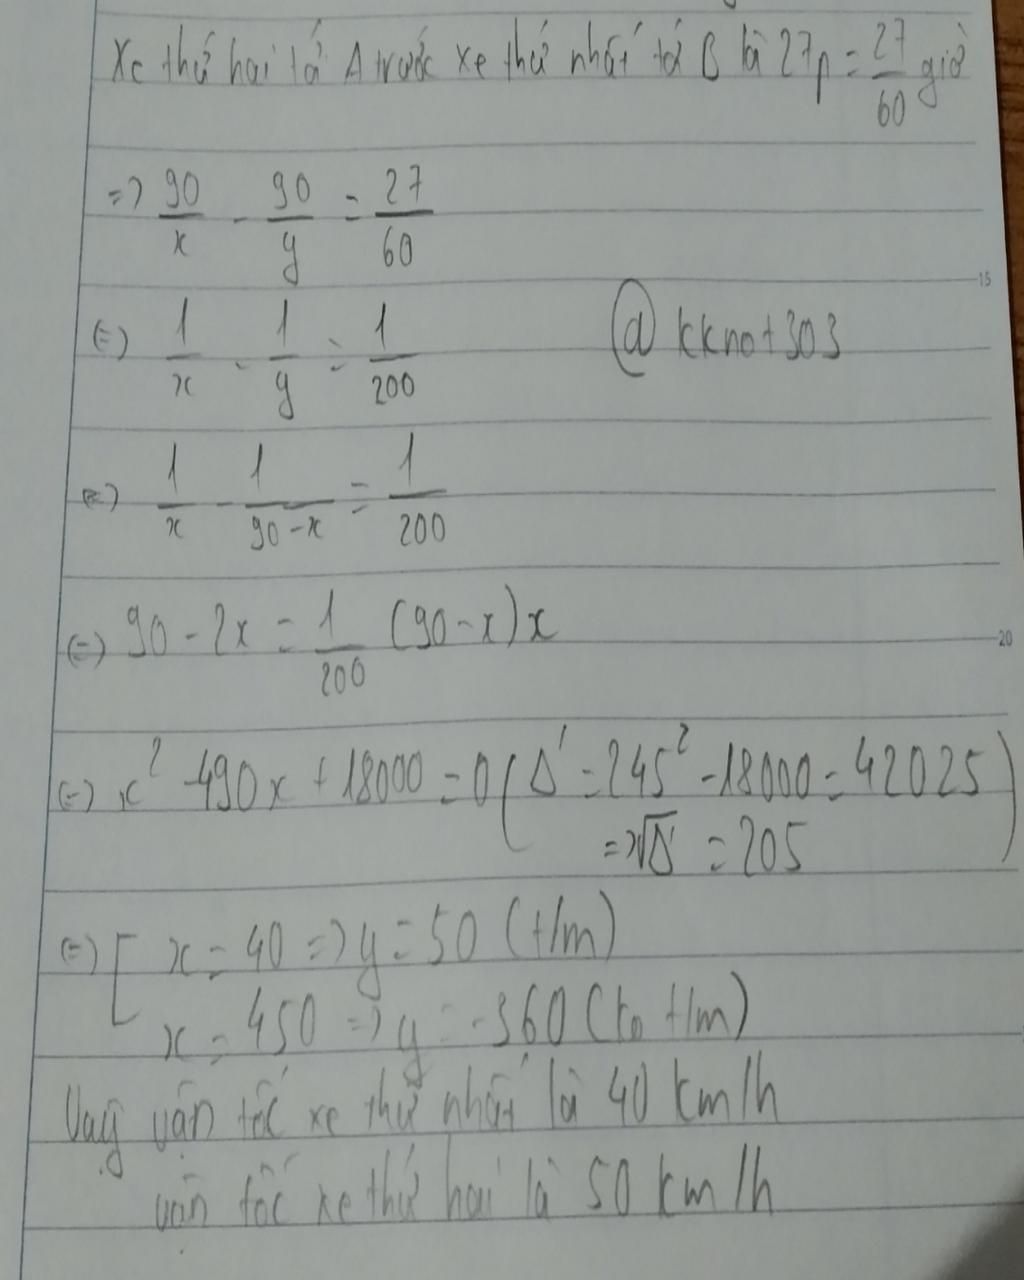 Xe thứ hai tới A trước xe thứ nhất tới B là 27p = 27/60 giờ
=> 90/x - 90/y = 27/60
15
(=) 1/x - 1/y = 1/200
@kknot303
(=) 1/x - 1/(90-x) = 1/200
(=) 90 - 2x = 1/200 (90-x)x
20
(=) x² - 490x + 18000 = 0 (Δ' = 245² - 18000 = 42025
=> √Δ' = 205)
(=) [ x = 40 => y = 50 (t/m)
x = 450 => y = -360 (ko t/m)
Vậy vận tốc xe thứ nhất là 40 km/h
vận tốc xe thứ hai là 50 km/h